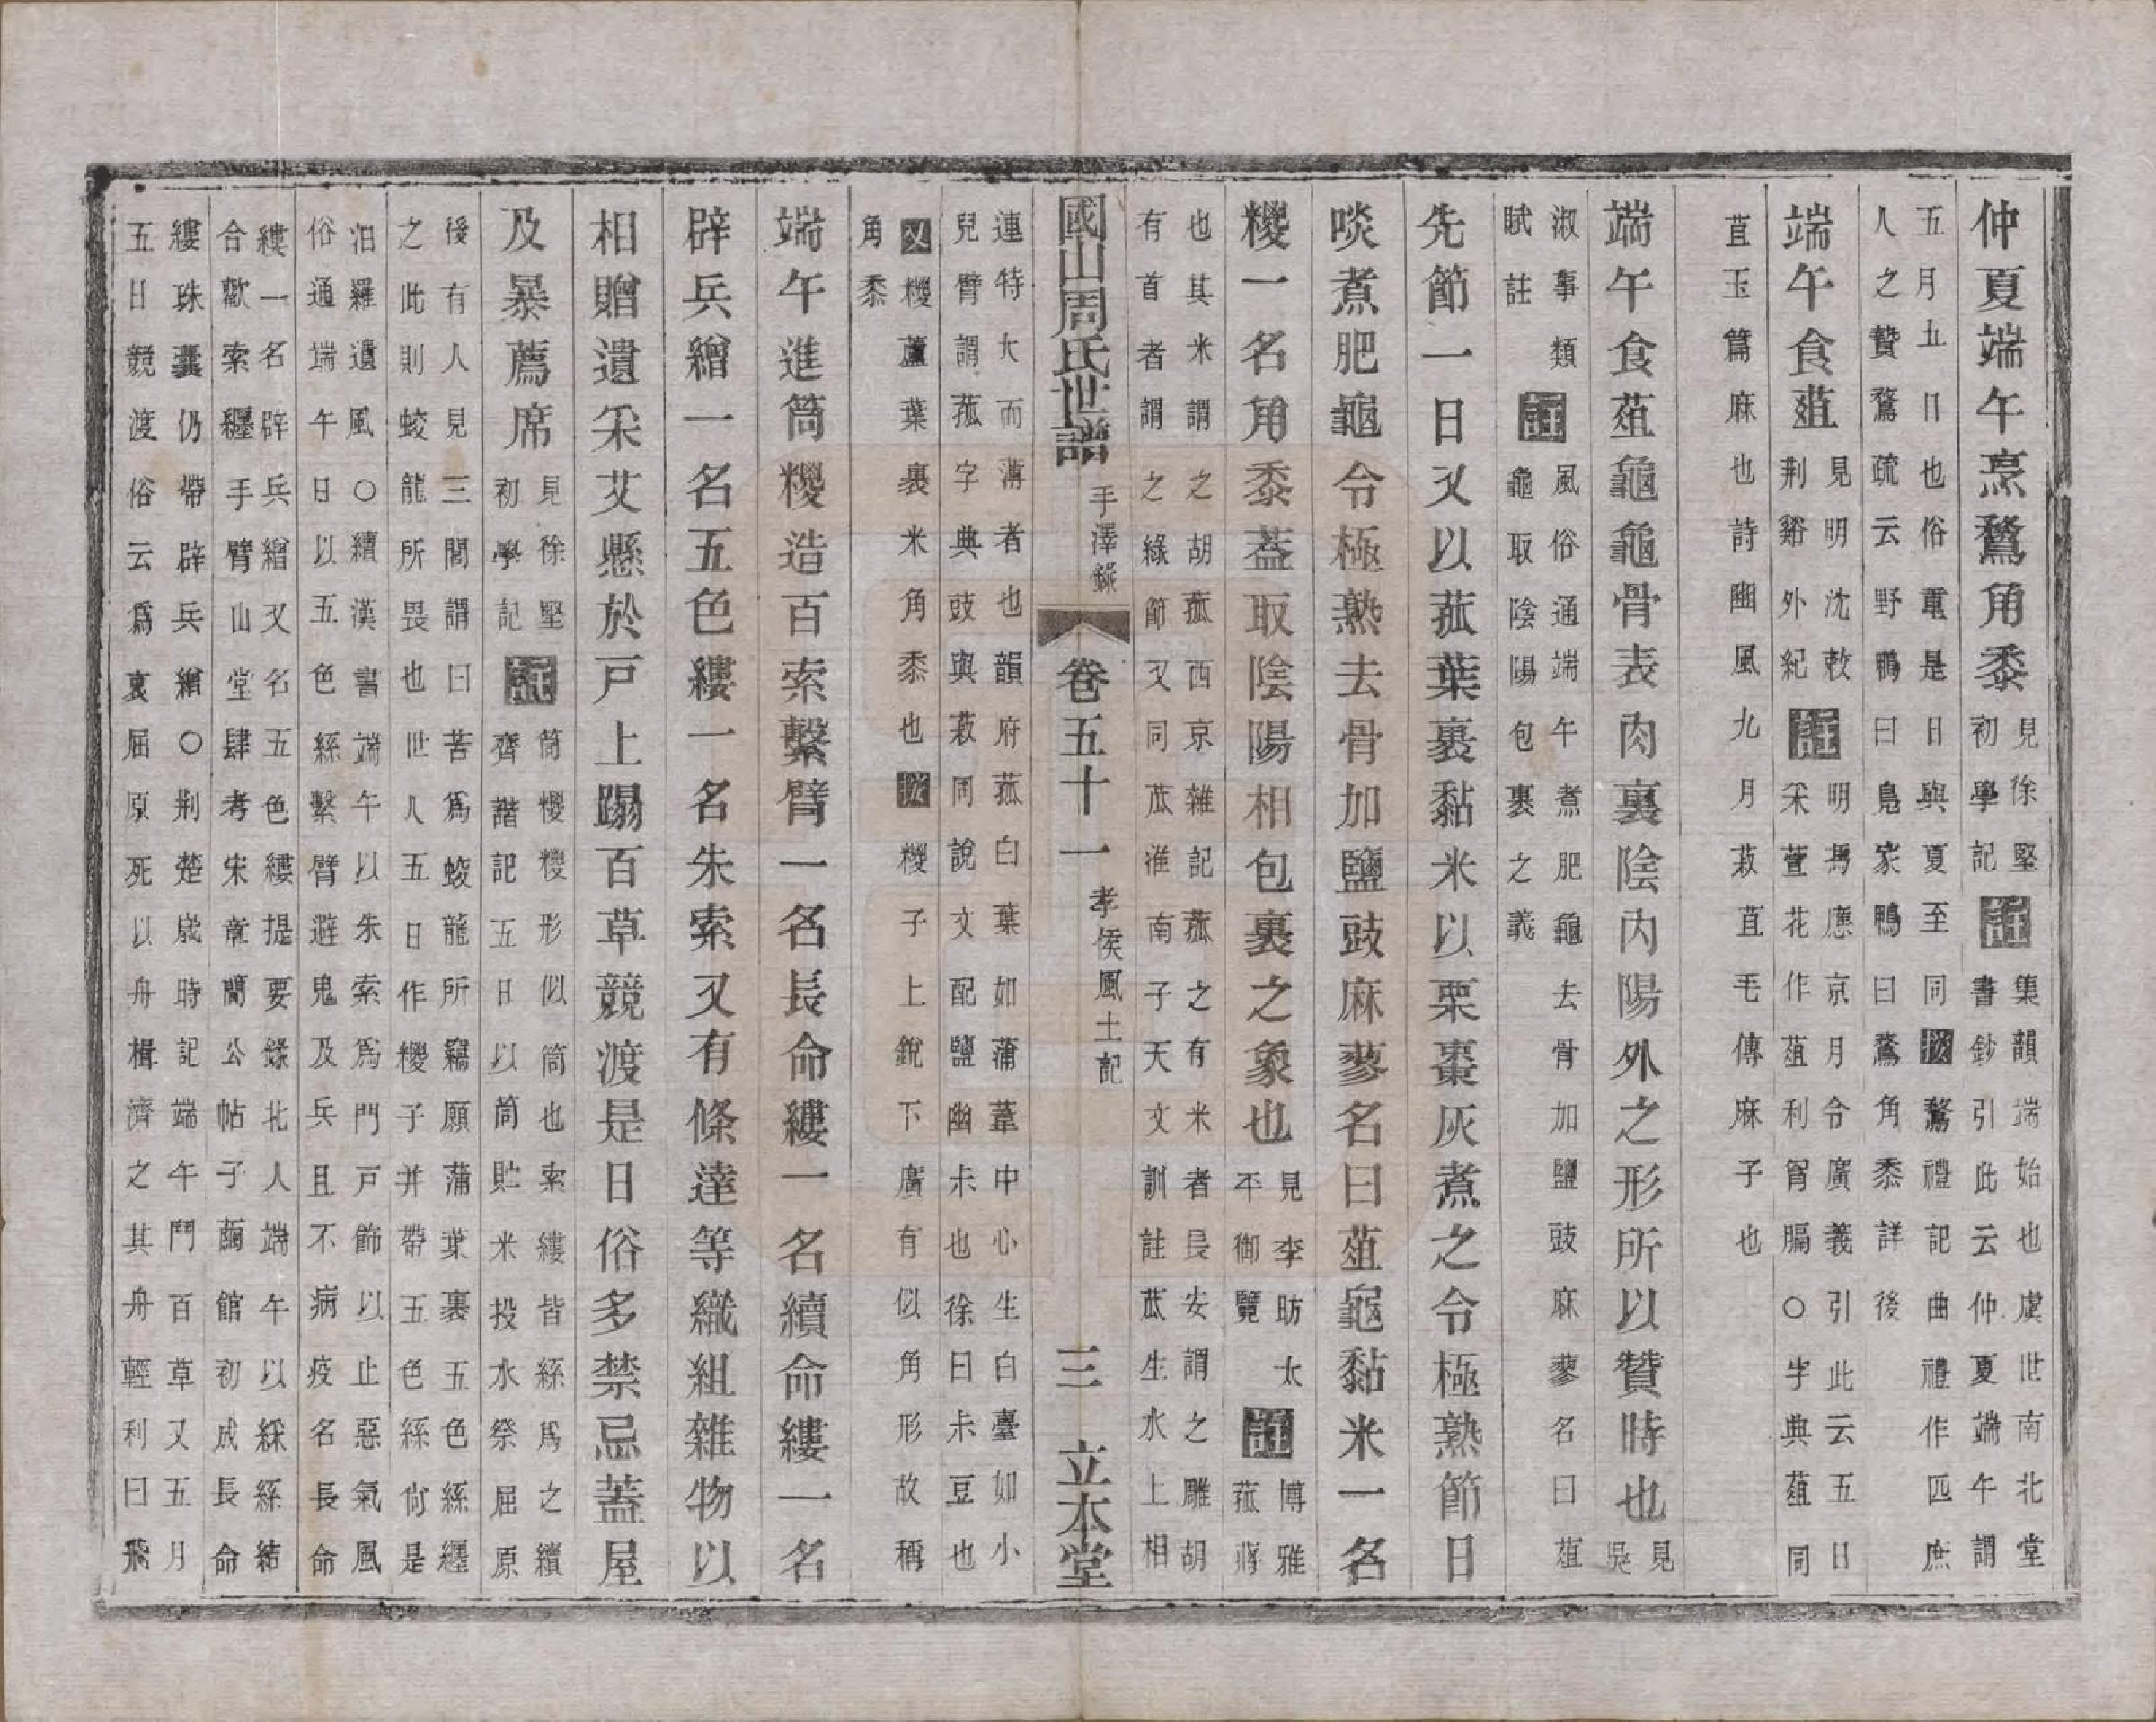 仲夏端午烹鶩角黍
見徐堅
初學記
註
集韻端始也虞世南北堂
書鈔引此云仲夏端午謂
五月五日也俗重是日與夏至同按鶩禮記曲禮作匹庶
人之贄鶩疏云野鴨曰鳧家鴨曰鶩角黍詳後
端午食葅
見明沈敕
荆谿外紀
註
明馮應京月令廣義引此云五日
采萱花作葅利胷膈○字典葅同
苴玉篇麻也詩豳風九月菽苴毛傳麻子也
端午食葅龜龜骨表肉裏陰內陽外之形所以贊時也
見
吳
淑事類
賦註
註
風俗通端午煮肥龜去骨加鹽豉麻蓼名曰葅
龜取陰陽包裹之義
先節一日又以菰葉裹黏米以栗棗灰煮之令極熟節日
啖煮肥龜令極熟去骨加鹽豉麻蓼名曰葅龜黏米一名
糉一名角黍蓋取陰陽相包裹之象也
見李昉太
平御覽
註
博雅
菰蔣
也其米謂之胡菰西京雜記菰之有米者長安謂之雕胡
有首者謂之綠節又同苽淮南子天文訓註苽生水上相
國山周氏世譜 手澤錄 卷五十一 孝侯風土記 三 立本堂
連特大而薄者也韻府菰白葉如蒲葦中心生白臺如小
兒臂謂菰字典豉與菽同說文配鹽幽尗也徐曰尗豆也
又糉蘆葉裹米角黍也按糉子上銳下廣有似角形故稱
角黍
端午進筒糉造百索繫臂一名長命縷一名續命縷一名
辟兵繒一名五色縷一名朱索又有條達等織組雜物以
相贈遺采艾懸於戸上蹋百草競渡是日俗多禁忌蓋屋
及暴薦席
見徐堅
初學記
註
筒糉糉形似筒也索縷皆絲爲之續
齊諧記五日以筒貯米投水祭屈原
後有人見三閭謂曰苦爲蛟龍所竊願蒲葉裹五色絲纏
之此則蛟龍所畏也世人五日作糉子并帶五色絲尙是
汨羅遺風○續漢書端午以朱索爲門戸飾以止惡氣風
俗通端午日以五色絲繫臂避鬼及兵且不病疫名長命
縷一名辟兵繒又名五色縷提要錄北人端午以綵絲結
合歡索纏手臂山堂肆考宋章簡公帖子繭館初成長命
縷珠囊仍帶辟兵繒○荆楚歲時記端午鬥百草又五月
五日競渡俗云爲哀屈原死以舟楫濟之其舟輕利曰飛